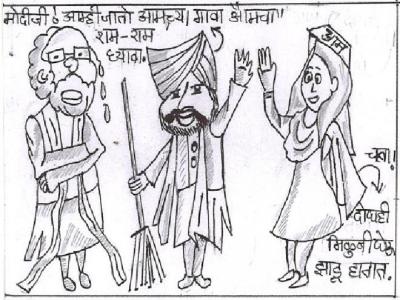 मोदीजी! आम्ही जातो आमच्या गावा आमचा
राम-राम
घ्यावा.
आम
चला!
दोघही
मिळुनी घेऊ
झाडू हातात.